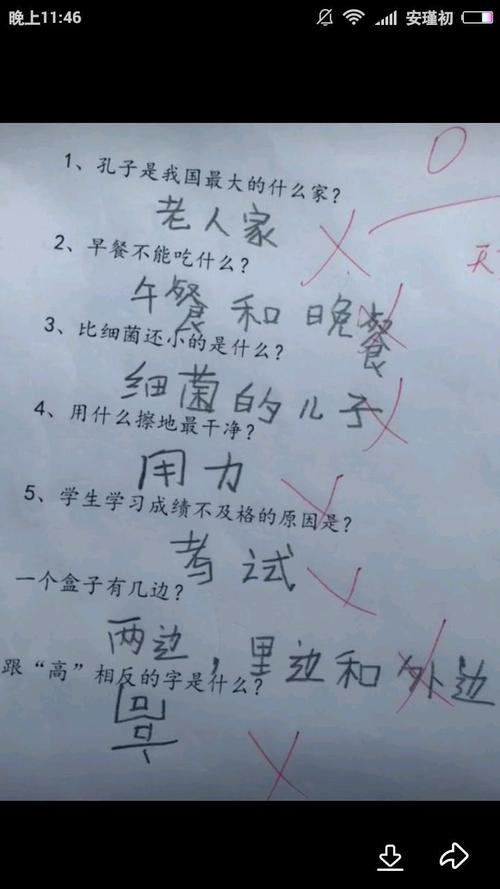 晚上11:46 安瑾初
0
1、孔子是我国最大的什么家?
老人家
天
2、早餐不能吃什么?
午餐和晚餐
3、比细菌还小的是什么?
细菌的儿子
4、用什么擦地最干净?
用力
5、学生学习成绩不及格的原因是?
考试
一个盒子有几边?
两边,里边和外边
跟“高”相反的字是什么?